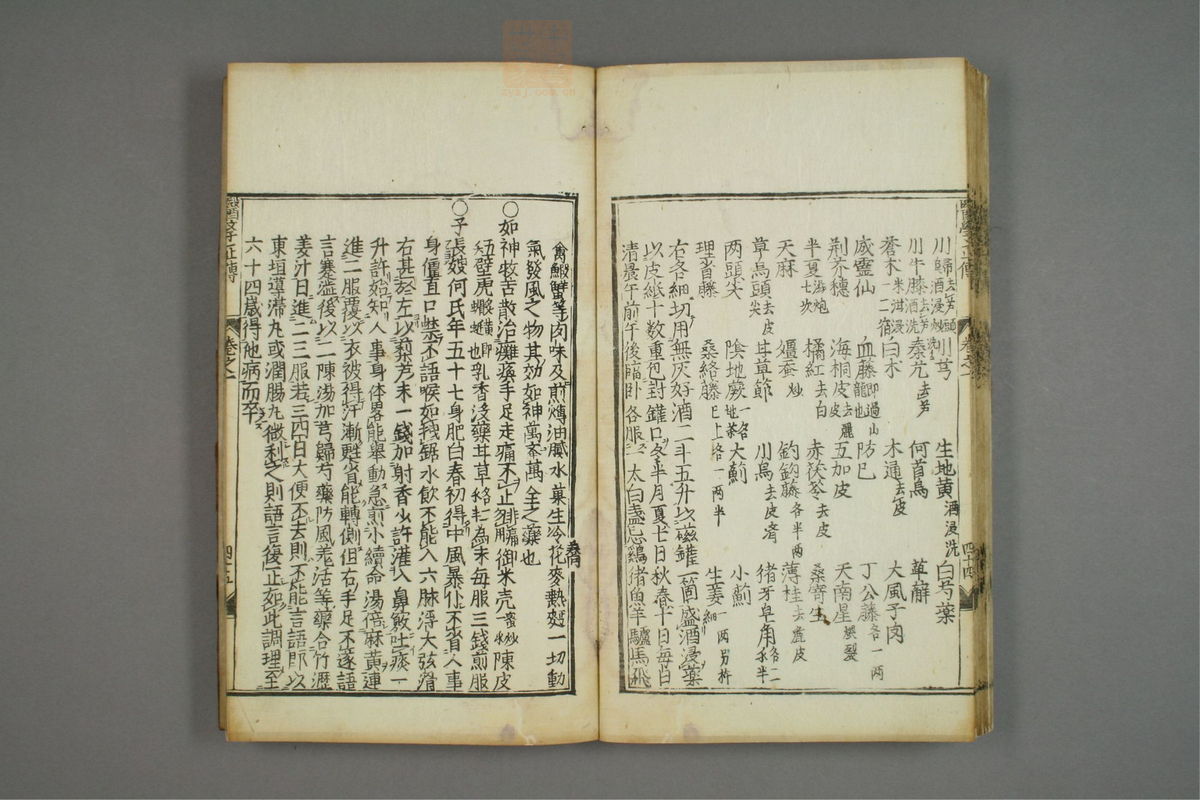 川歸酒浸洗去芦頭 川芎 生地黄酒浸洗 白芍藥
川牛膝去芦酒洗 秦艽去芦 何首烏 萆薢
蒼朮米泔浸一二宿 白朮 木通去皮 大風子肉
威靈仙 血藤即過山龍也 防已 丁公藤各一両
荆芥穗 海桐皮去麗皮 五加皮 天南星煨裂
半夏湯炮七次 橘紅去白 赤茯苓去皮 桑寄生
天麻 殭蚕炒 釣鈎藤各半両 薄桂去麁皮
草烏頭去皮尖 甘草節 川烏去皮 猪牙皂角各二
両頭尖 陰地蕨一名地茶 大薊 小薊
理省藤 桑絡藤已上各一両半 生姜一両另杵細
右各細切用無灰好酒二斗五升以磁罐一箇盛酒浸藥
以皮紙十数重包封罐口冬半月夏七日秋春十日毎日
清晨午前午後臨卧各服一大白盞忌鷄猪魚羊驢馬飛
禽鰕蟹等肉味及煎煿油膩水菓生冷花麥熱麪一切動
氣發風之物其効如神萬萬全之藥也
○如神救苦散治癱瘓手足走痛不止 御米壳蜜炒 陳皮
虎 乳香没藥甘草各 為末毎服三錢煎服
○子張嫂何氏年五十七身肥白春初得中風暴仆不省人事
身僵直口禁不語喉如拽鋸水飲不能入六脉浮大弦滑
右甚於左以藜芦末一錢加射香少許灌入鼻竅吐痰一
升許始知人事身体畧能舉動急煎小續命湯倍麻黄連
進二服覆以衣被得汗漸甦省能轉側但右手足不遂語
言蹇澁後以二陳湯加芎歸芍藥防風羗活等藥合竹瀝
姜汁日進二三服若三四日大便不去則不能言語即以
東垣導滯丸或潤腸丸微利之則語言復正如此調理至
六十四歳得他病而卒
醫學正傳
卷之一
四十四
四十五
zysj.com.cn